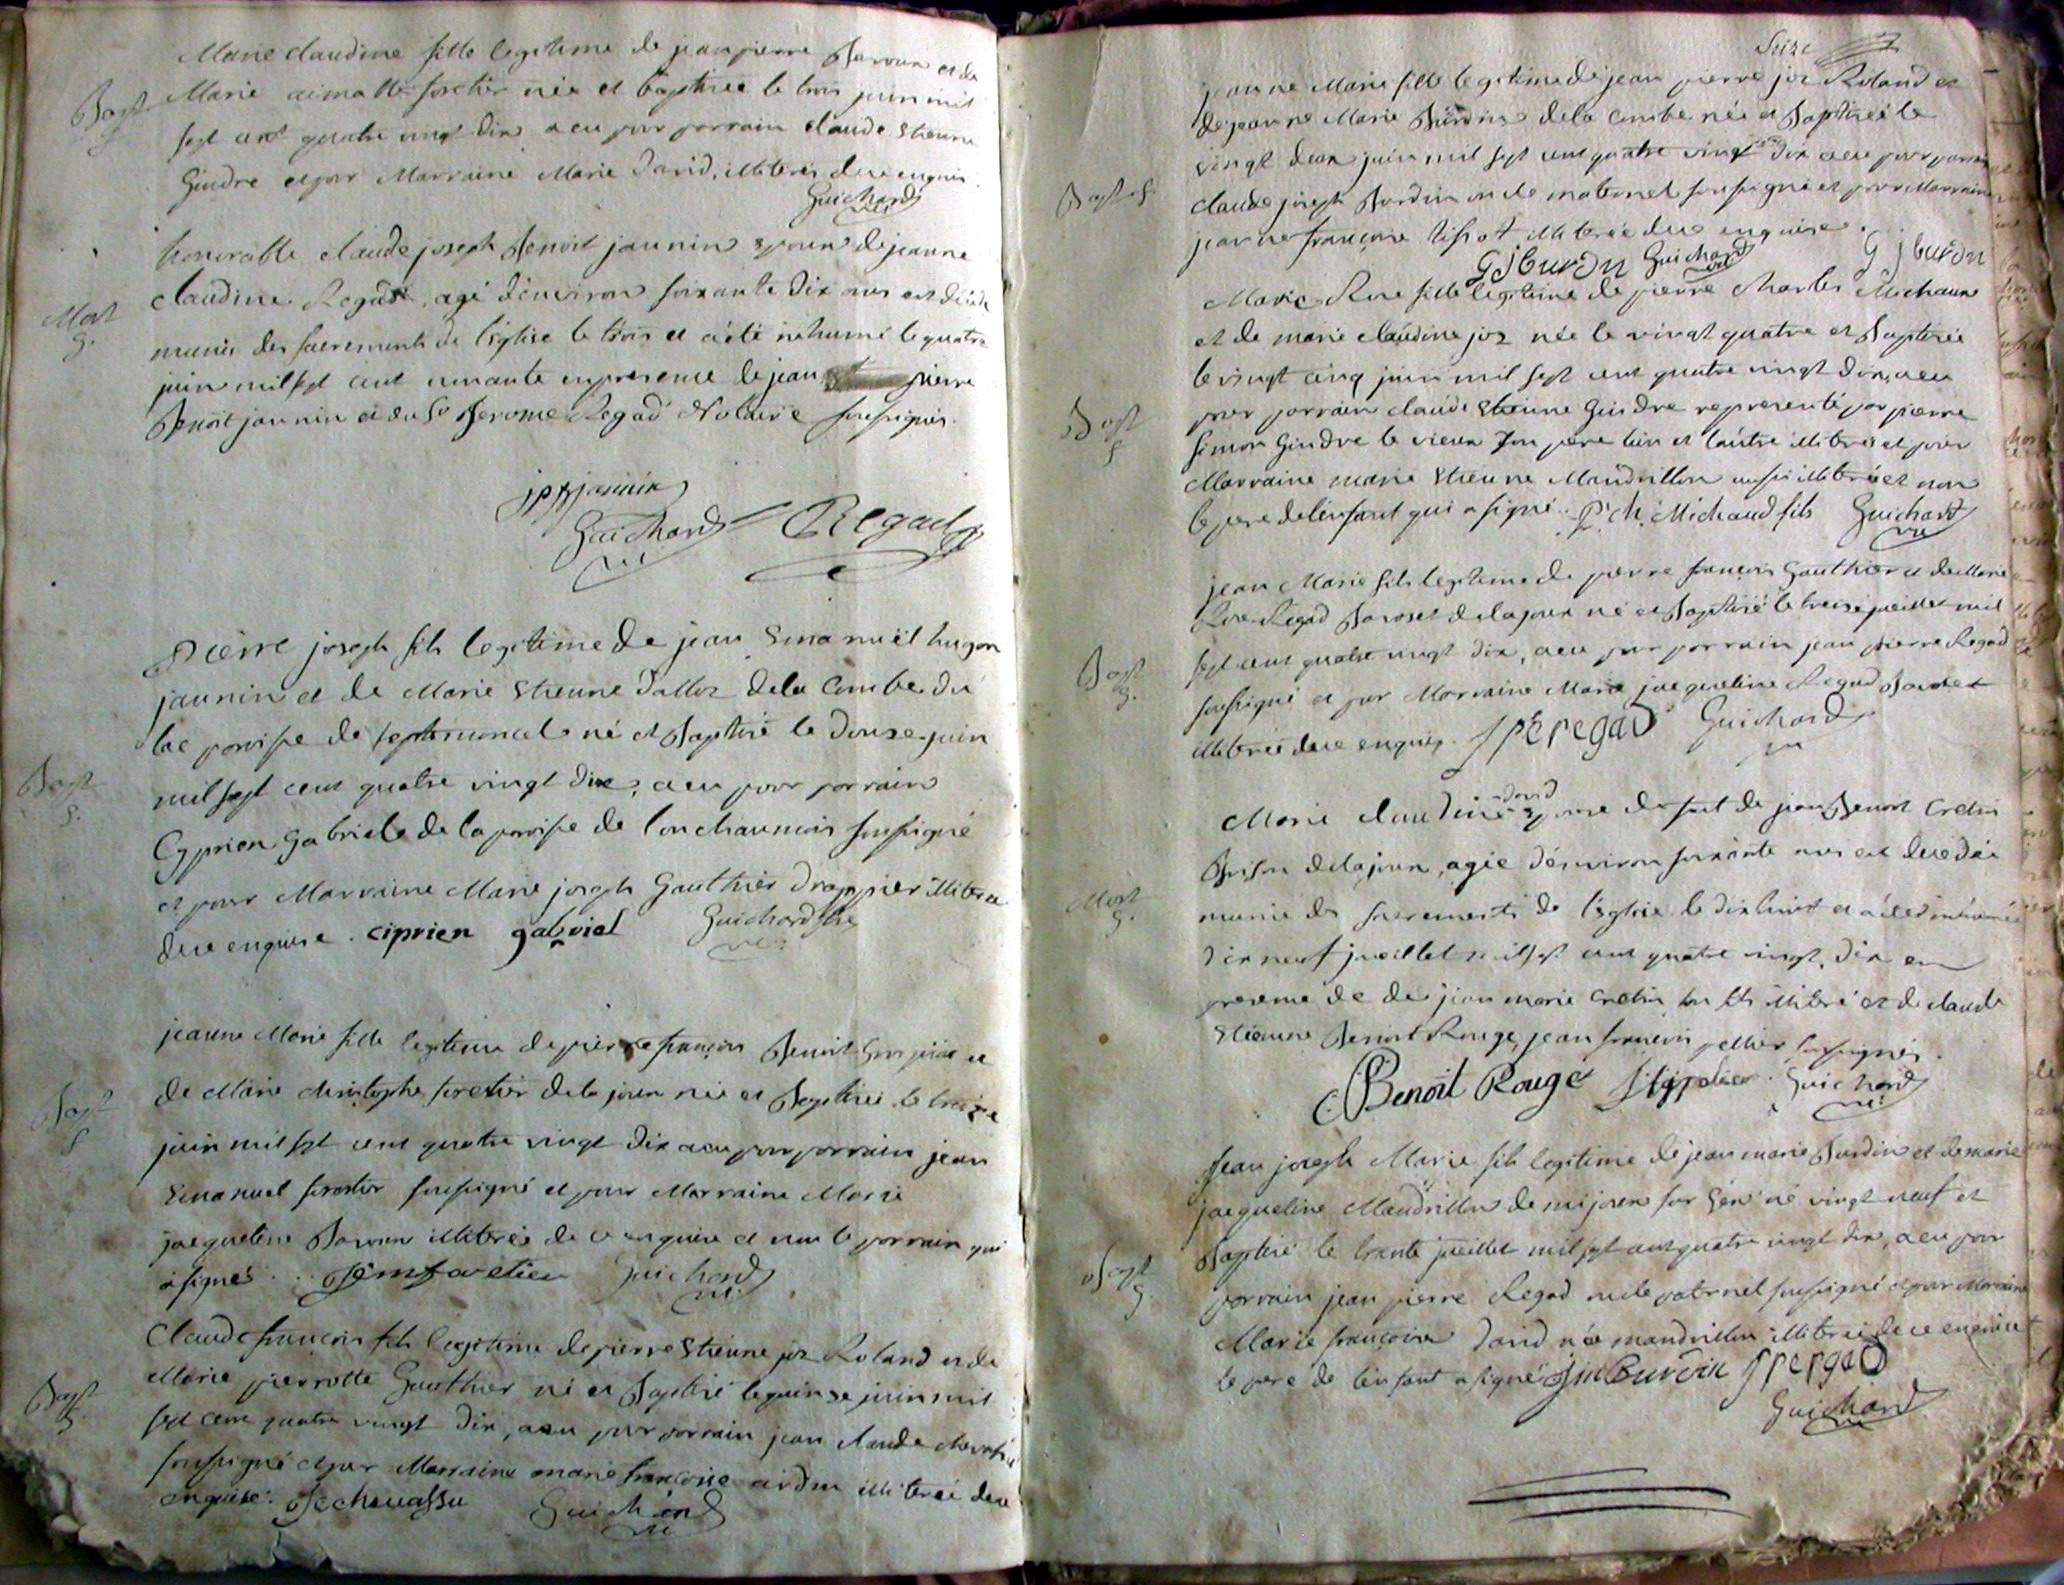 Marie claudine fille legitime de jean pierre Baroux et de
Bapt
Marie aimable foretier née et baptisée le trois juin mil
sept cent quatre vingt dix a eu pour parrain claude Etienne
Gindre et pour Marraine Marie David, illiterés de ce enquis.
Guichard
vic
honorable claude joseph Benoit jannin epoux de jeanne
claudine Regad, agé d'environ soixante dix ans est décédé
Mort
g.
munis des sacrements de l'Eglise le trois et a été inhumé le quatre
juin mil sept cent nonante en presence de jean pierre
Benoit jannin et du Sr Jerome Regad Notaire soussignés.
jp jannin
Guichard Regad
vic
Pierre joseph fils legitime de jean Emanuël hugon
jannin et de Marie Etienne Dalloz de la Combe du
lac paroisse de septmoncel né et Baptisé le douze juin
Bapt
g.
mil sept cent quatre vingt dix, a eu pour parrain
Cyprien Gabriele de la paroisse de Lonchaumois soussigné
et pour Marraine Marie joseph Gauthier Drappier illiterée
de ce enquise. ciprien gabriel Guichard
vic:
jeanne Marie fille legitime de pierre françois Benoit et
de Marie christophe foretier de la joux née et Baptisée le treize
Bapt
f
juin mil sept cent quatre vingt dix a eu pour parrain jean
Emanuel foretier soussigné et pour Marraine Marie
jacqueline Baroux illiterée de ce enquise et non le parrain qui
a signé. Jem foretier Guichard
vic.
Claude françois fils legitime de pierre Etienne joz Roland et de
Marie pierrotte Gauthier né et Baptisé le quinze juin mil
Bapt
g.
sept cent quatre vingt dix, a eu pour parrain jean claude chevassu
soussigné et pour Marraine marie françoise illiterée de ce
enquise. Jcchevassu Guichard
vic
Seize
jeanne Marie fille legitime de jean pierre joz Roland et
de jeanne Marie Burdin de la combe née et Baptisée le
vingt deux juin mil sept cent quatre vingt dix a eu pour parrain
Bapt f.
claude joseph Burdin oncle maternel soussigné et pour Marraine
jeanne françoise tissot illiterée de ce enquise.
G J burdn Guichard G J burdn
vic
Marie Rose fille legitime de pierre charles Michaux
et de marie claudine joz née le vingt quatre et Baptisée
le vingt cinq juin mil sept cent quatre vingt dix, a eu
Bapt
f
pour parrain claude Etienne Gindre representé par pierre
simon Gindre le vieux son pere l'un et l'autre illiterés et pour
Marraine marie Etienne Mandrillon aussi illiterée et non
le pere de l'enfant qui a signé. P. ch. Michaud fils Guichard
vic
jean Marie fils legitime de pierre françois Gauthier et de Marie
Rose Regad Baroset de la joux né et Baptisé le treize juillet mil
Bapt
g.
sept cent quatre vingt dix, a eu pour parrain jean pierre Regad
soussigné et pour Marraine Marie jacqueline Regad
illiterée de ce enquise. J P Regad Guichard
vic
david
Marie claudine epouse de fut de jean Benoit Cretin
Buson de la joux, agée d'environ soixante ans est decedée
Mort
g.
munie des sacrements de l'eglise le dix huit et a été inhumée
dix neuf juillet mil sept cent quatre vingt dix en
presence de de jean marie Cretin son fils illiteré et de claude
Etienne Benoit Rouge, jean françois pellier soussignés.
C. Benoit Rouge Guichard
vic:
Jean joseph Marie fils legitime de jean marie Burdin et de marie
jacqueline Mandrillon de mijoux sur Gex né vingt neuf et
Bapt
g.
Baptisé le trente juillet mil sept cent quatre vingt dix, a eu pour
parrain jean pierre Regad oncle paternel soussigné et pour Marraine
Marie françoise David née mandrillon illiterée de ce enquise
le pere de l'enfant a signé Jm Burdin J P regad
Guichard
vic